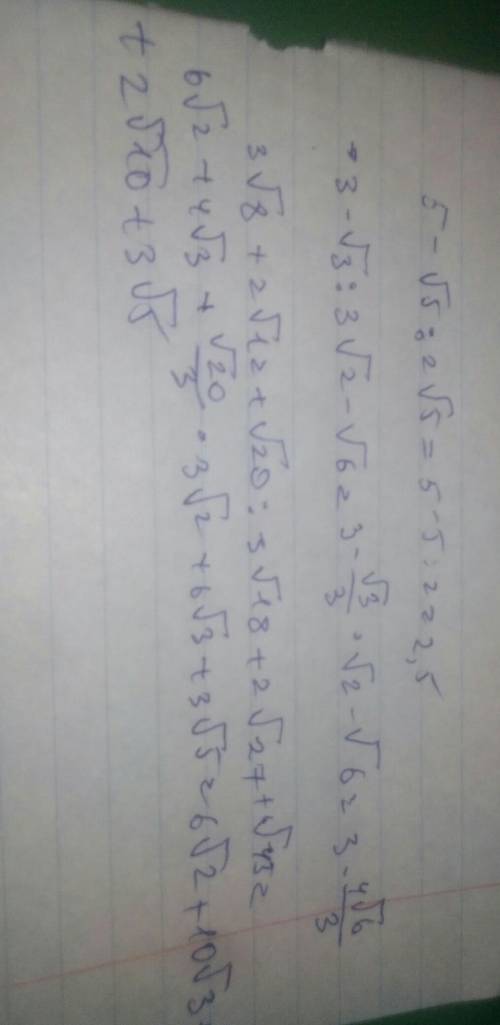 5 - √5 : 2√5 = 5 - 5 : 2 = 2,5
3 - √3 : 3√2 - √6 = 3 - √3/3 · √2 - √6 = 3 - 4√6/3
3√8 + 2√12 + √20 : 3√18 + 2√27 + √45 =
6√2 + 4√3 + √20/3 · 3√2 + 6√3 + 3√5 = 6√2 + 10√3
+ 2√10 + 3√5